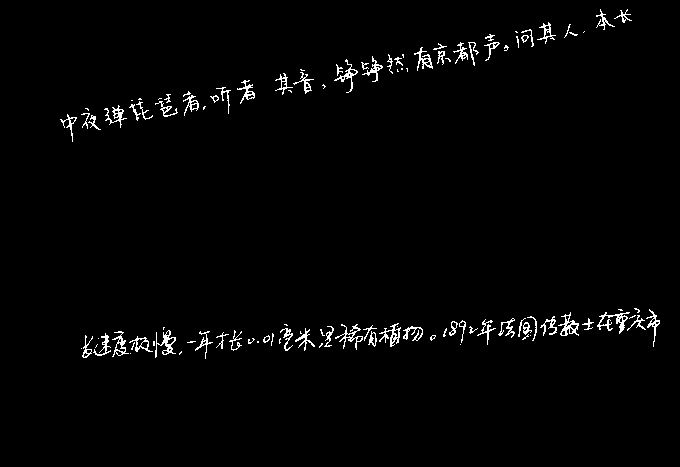 中夜弹琵琶者,听者 其音,铮铮然有京都声。问其人,本长
长速度极慢,一年才长0.01毫米是稀有植物。1892年法国传教士在重庆市